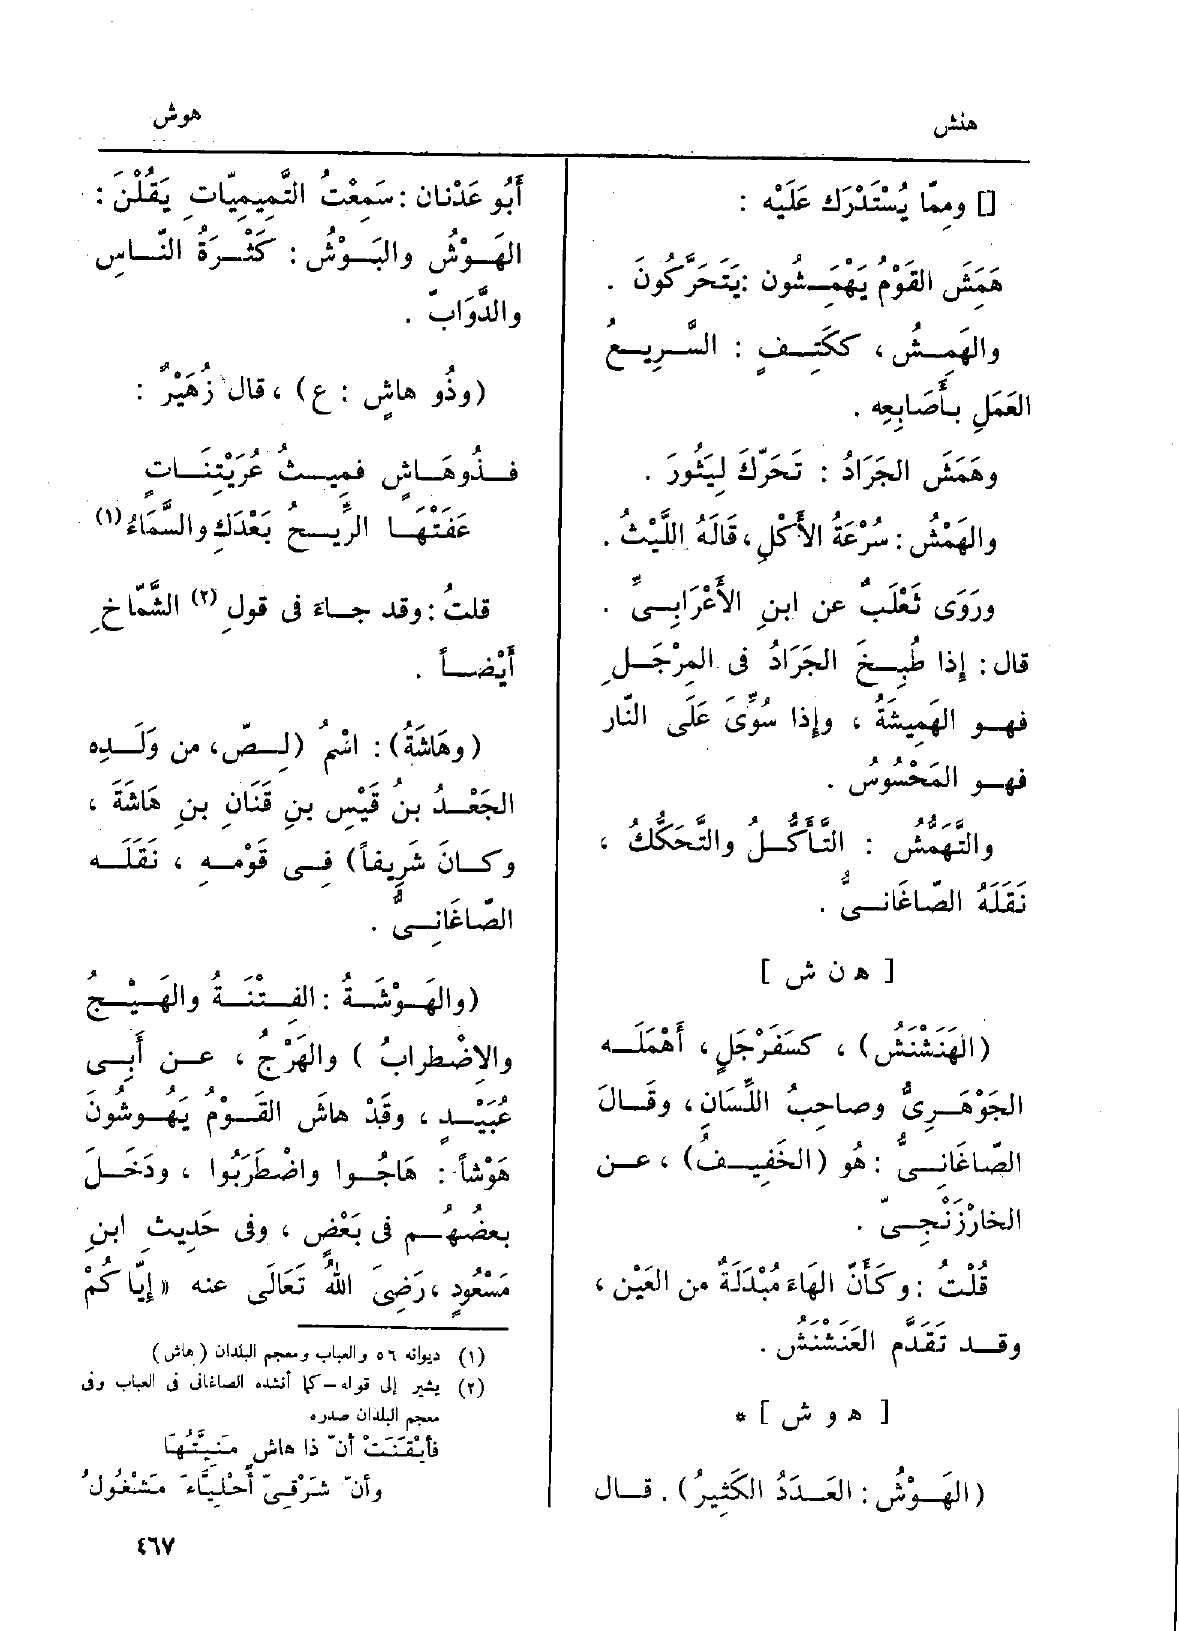 هنش
هوش
[] وممّا يُسْتَدْرَك عَلَيْه :
هَمَشَ القَوْمُ يَهْمِشُون : يَتَحَرَّكُونَ .
والهَمِشُ ، ككَتِفٍ : السَّرِيعُ
العَمَلِ بأَصَابِعِه .
وهَمَشَ الجَرَادُ : تَحَرَّكَ لِيَثُورَ .
والهَمْشُ : سُرْعَةُ الأَكْلِ ، قَالَهُ اللَّيْثُ .
ورَوَى ثَعْلَبٌ عن ابنِ الأَعْرَابِىِّ .
قال : إِذا طُبِخَ الجَرَادُ فى المِرْجَلِ
فهو الهَمِيشَةُ ، وإِذا سُوِّىَ عَلَى النّار
فهو المَحْسُوسُ .
والتَّهَمُّشُ : التَّأَكُّلُ والتَّحَكُّكُ ،
نَقَلَهُ الصّاغَانِىُّ .
[ ه ن ش ]
(الهَنَشْنَشُ) ، كسَفَرْجَلٍ ، أَهْمَلَه
الجَوْهَرِىُّ وصاحِبُ اللِّسَانِ ، وقَالَ
الصّاغَانِىُّ : هُو (الخَفِيفُ) ، عن
الخارْزَنْجِىّ .
قُلْتُ : وكَأَنّ الهَاءَ مُبْدَلَةٌ من العَيْن ،
وقد تَقَدَّم العَنَشْنَشُ .
[ ه و ش ] *
(الهَوْشُ : العَدَدُ الكَثِيرُ) . قال
أَبُو عَدْنَان : سَمِعْتُ التَّمِيمِيّاتِ يَقُلْنَ :
الهَوْشُ والبَوْشُ : كَثْرَةُ النّاسِ
والدَّوَابّ .
(وذُو هاشٍ : ع) ، قال زُهَيْرٌ :
فذُوهَاشٍ فمِيثُ عُرَيْتِنَاتٍ
عَفَتْهَا الرِّيحُ بَعْدَكِ والسَّمَاءُ (١)
قلتُ : وقد جاءَ فى قولِ (٢) الشَّمّاخِ
أَيْضاً .
(وهَاشَةُ) : اسْمُ (لِصّ ، من وَلَدِه
الجَعْدُ بنُ قَيْسِ بنِ قَنَانِ بنِ هَاشَةَ ،
وكانَ شَرِيفاً) فِى قَوْمهِ ، نَقَلَه
الصّاغَانِىُّ .
(والهَوْشَةُ : الفِتْنَةُ والهَيْجُ
والاِضْطرابُ) والهَرْجُ ، عن أَبِى
عُبَيْدٍ ، وقَدْ هاشَ القَوْمُ يَهُوشُونَ
هَوْشاً : هَاجُوا واضْطَرَبُوا ، ودَخَلَ
بعضُهُم فى بَعْضٍ ، وفى حَدِيثِ ابنِ
مَسْعُودٍ ، رَضِىَ اللهُ تَعَالَى عنه « إِيّاكُمْ
(١) ديوانه ٥٦ والعباب ومعجم البلدان (هاش)
(٢) يشير إلى قوله – كما أنشده الصاغانى فى العباب وفى
معجم البلدان صدره
فأَيْقَنَتْ أَنّ ذا هاشٍ مَنِيَّتُهَا
وأنّ شَرْقِىّ أَحْلِيَاءَ مَشْغُولُ
٤٦٧